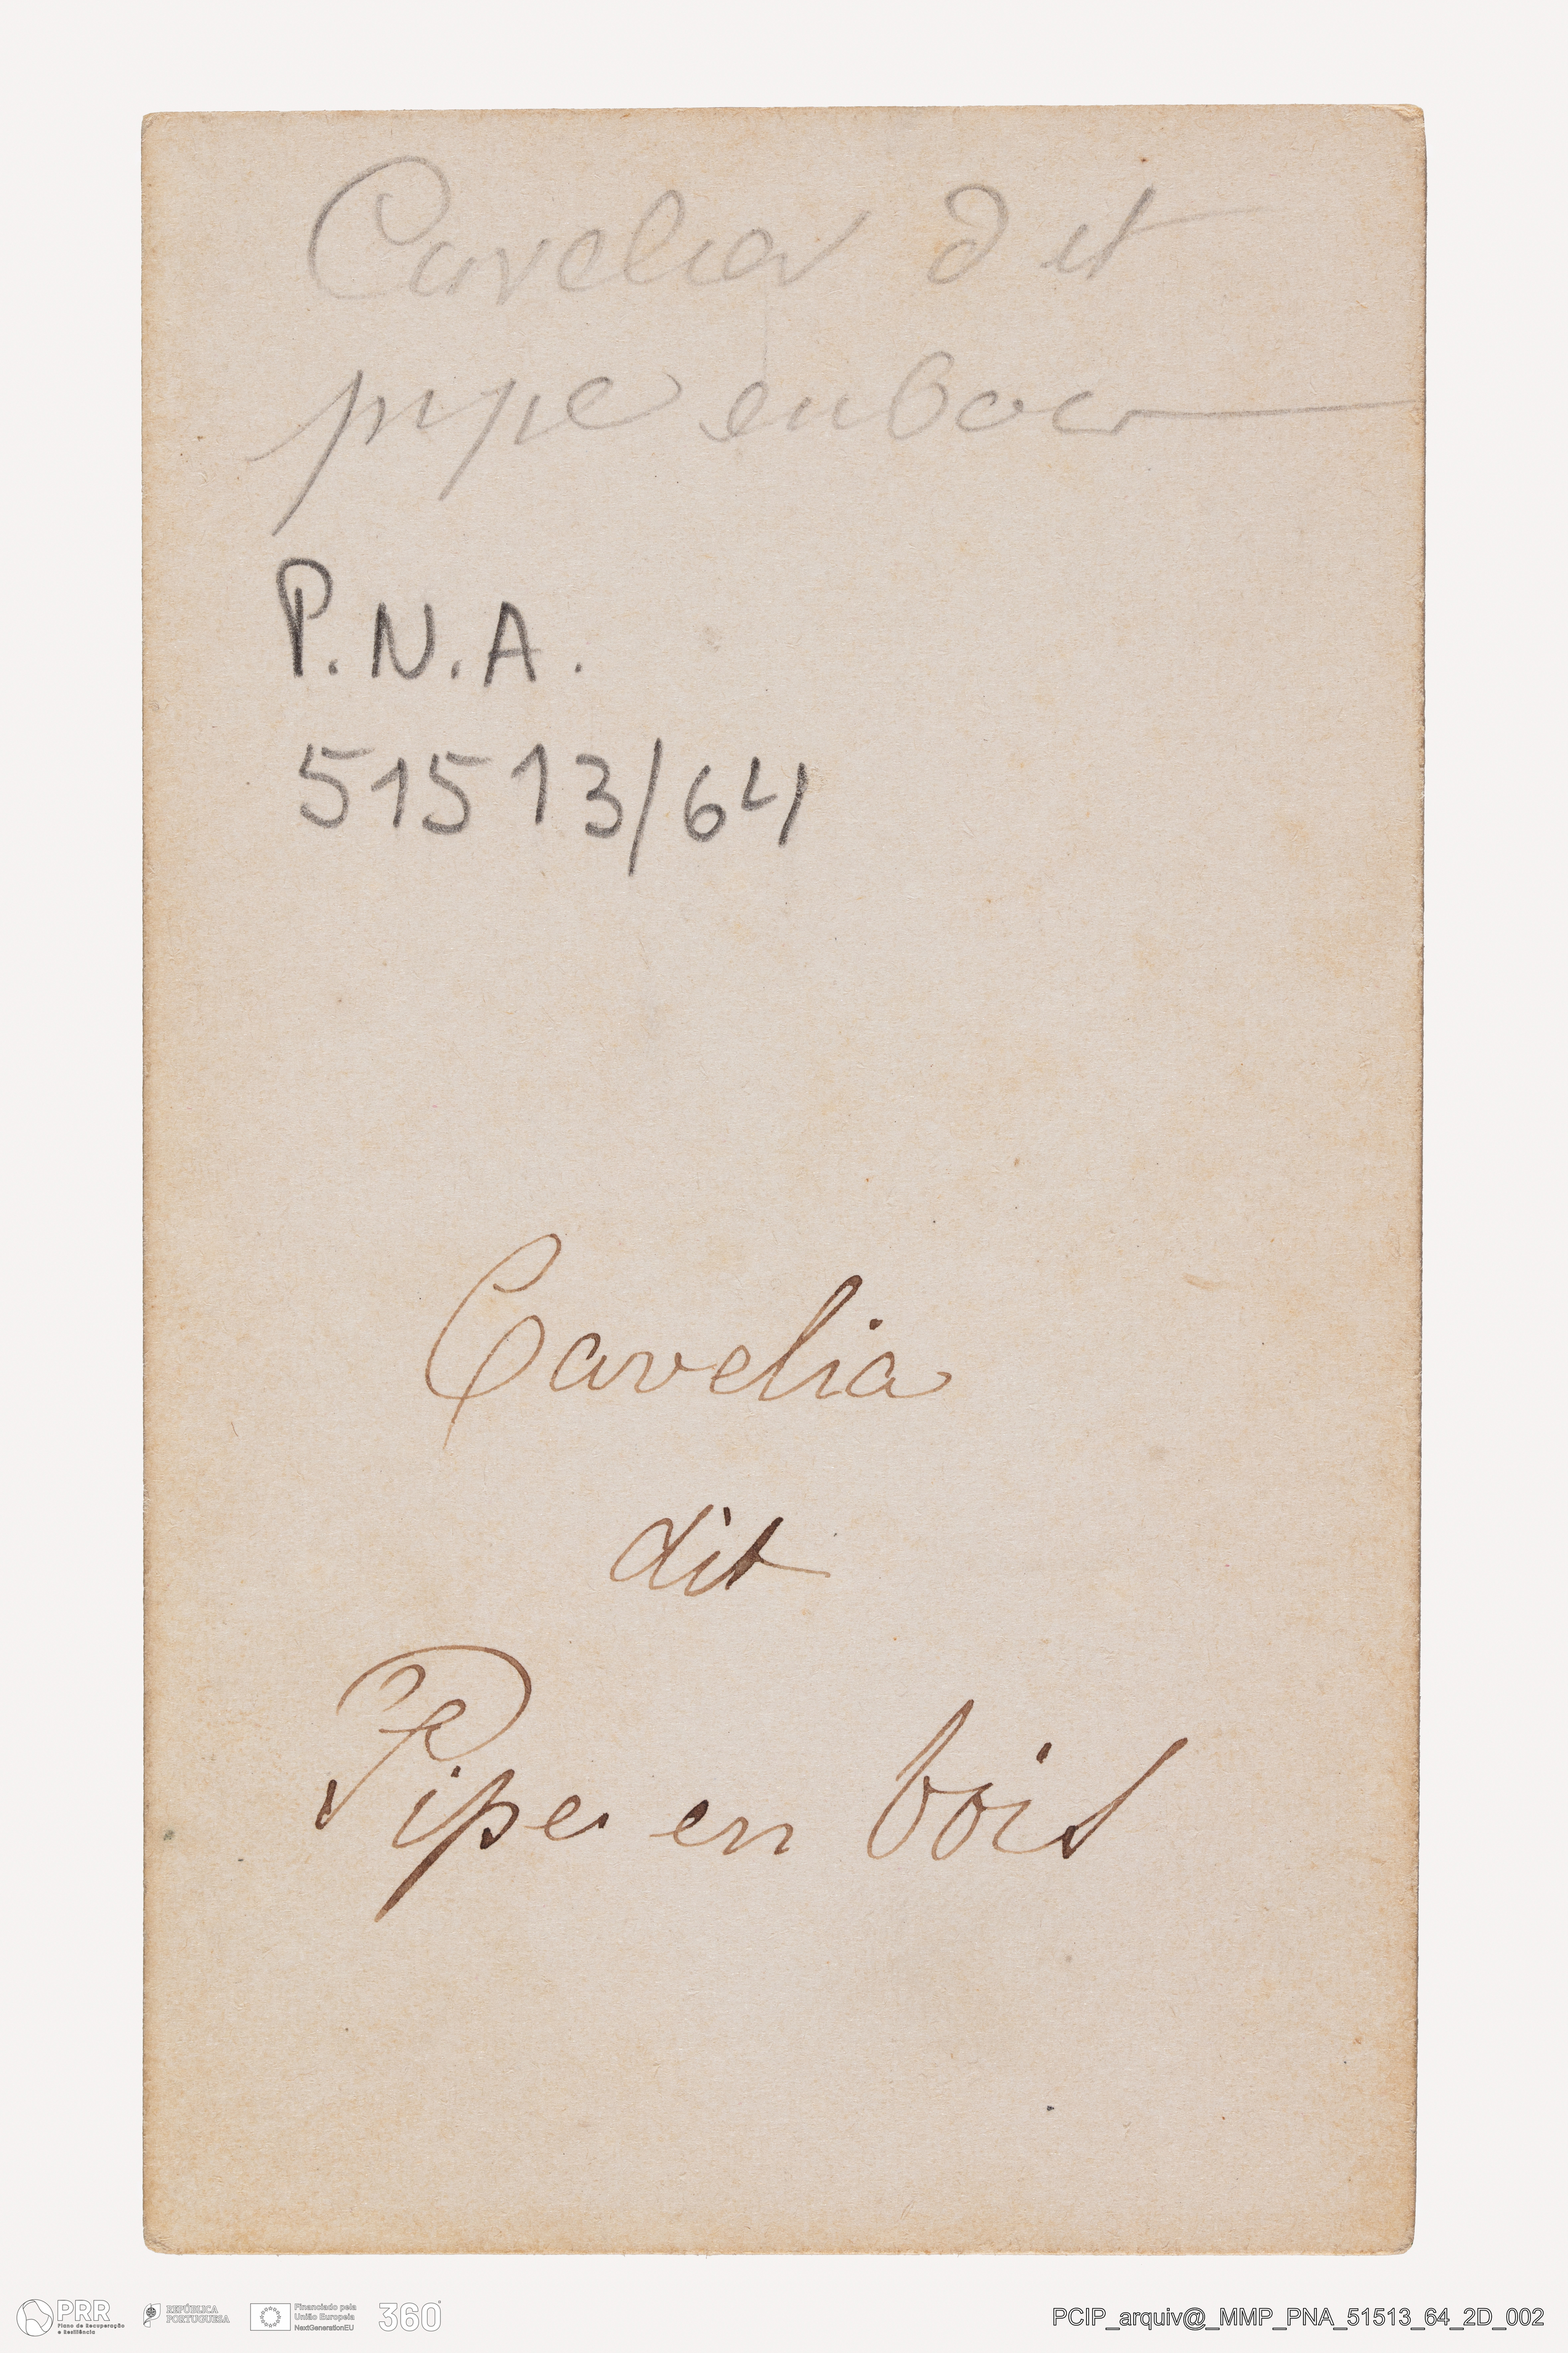 Cavelier dit
pipe en bois
P.N.A.
51513/64
Cavelia
dit
Pipe en bois
PRR
Plano de Recuperação
e Resiliência
REPÚBLICA
PORTUGUESA
Financiado pela
União Europeia
NextGenerationEU
360°
PCIP_arquiv@_MMP_PNA_51513_64_2D_002